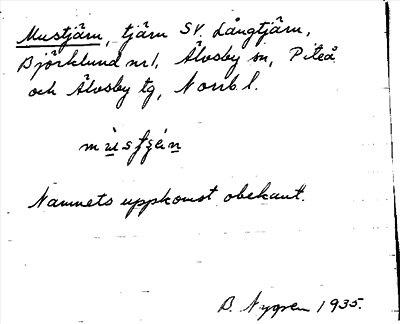 Mustjärn, tjärn SV. Långtjärn,
Björklund nr1, Älvsby sn, Piteå
och Älvsby tg, Norrb l.
Namnets uppkomst obekant.
B. Nygren 1935.